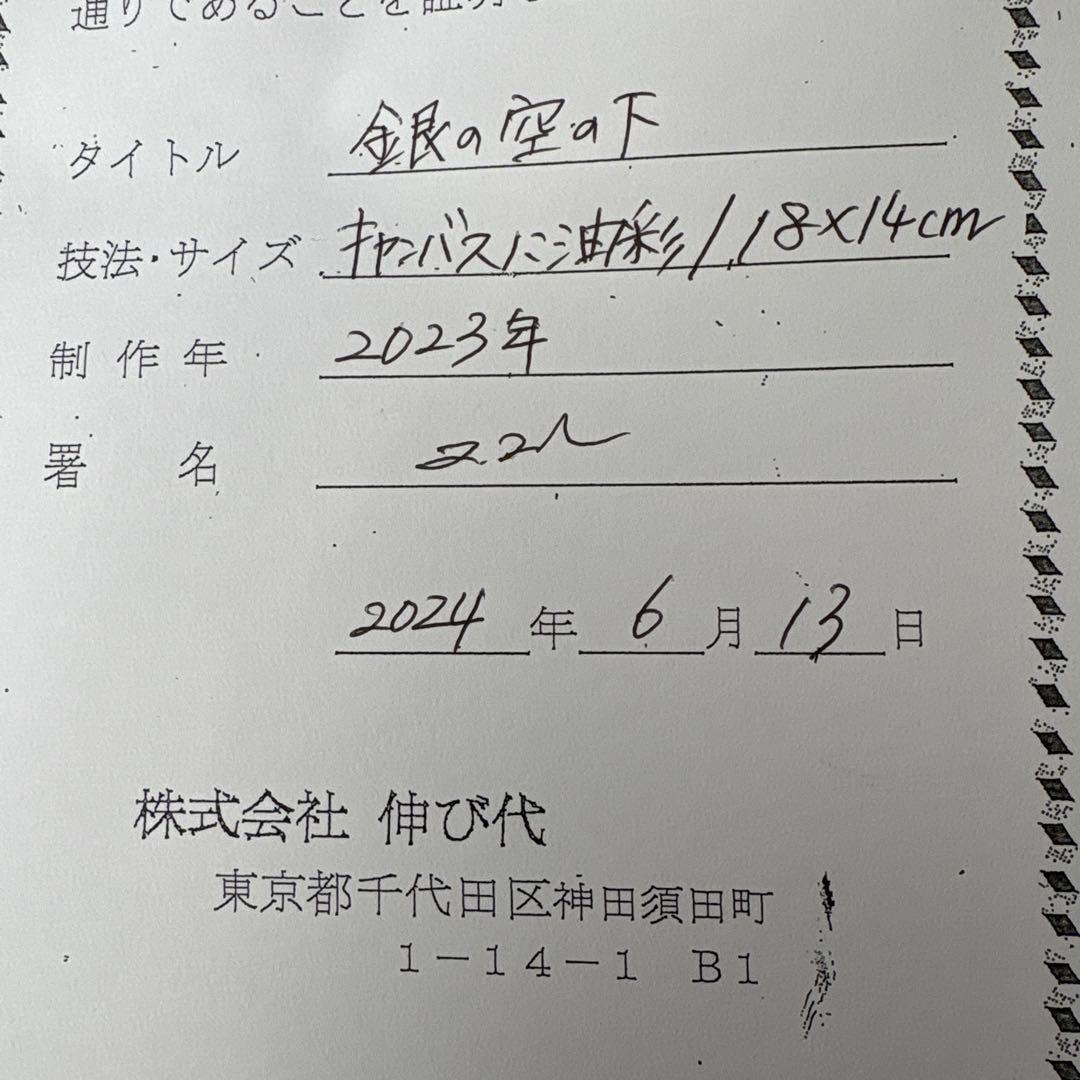 通りであることを証明
タイトル 銀の空の下
技法・サイズ キャンバスに油彩/18×14cm
制作年 2023年
署名
2024年6月13日
株式会社 伸び代
東京都千代田区神田須田町
1-14-1 B1